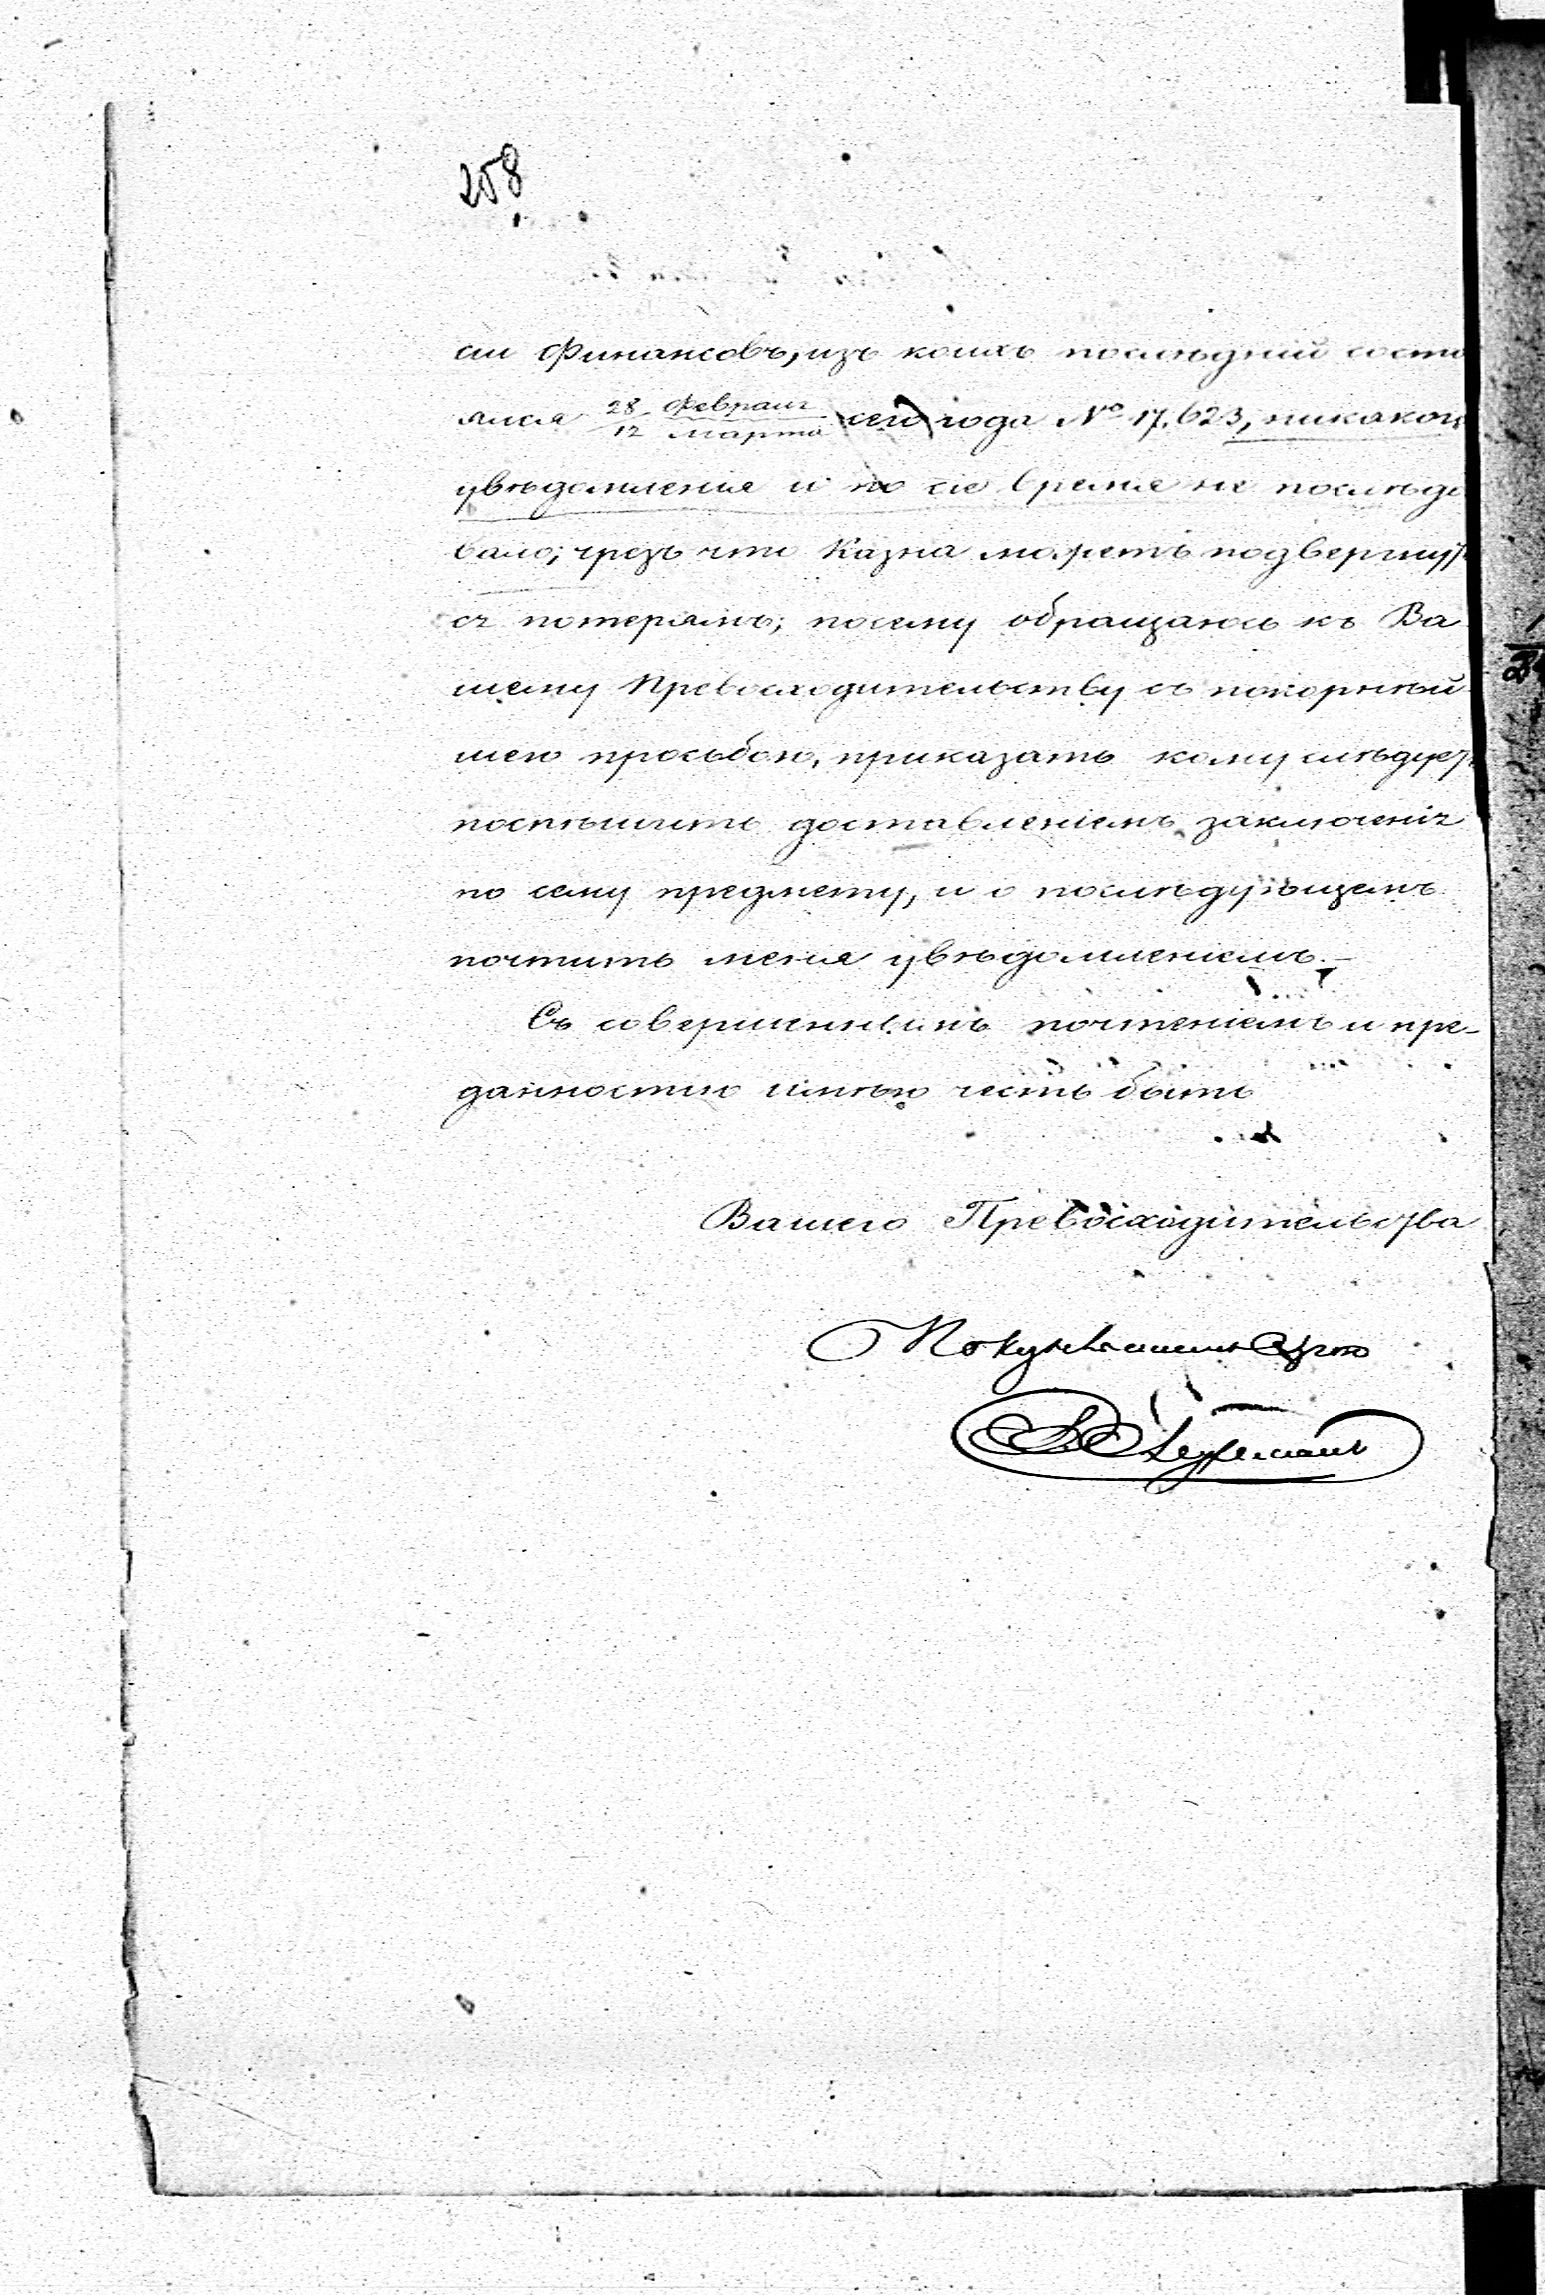 258
сіи Финансовъ, изъ коихъ послѣдній состо
ялся 28 Февраля / 12 Марта сего года № 17,623, никакого
увѣдомленія и по сіе время не послѣдо
вало; чрезъ что Казна можетъ подвергнуть
ся потерямъ; посему обращаюсь къ Ва
шему Превосходительству съ покорнѣй
шею просьбою, приказать кому слѣдуетъ
поспѣшить доставленіемъ заключенія
по сему предмету, и о послѣдующемъ
почтить меня увѣдомленіемъ.—
Съ совершеннымъ почтеніемъ и пре-
данностію имѣю честь быть
Вашего Превосходительства